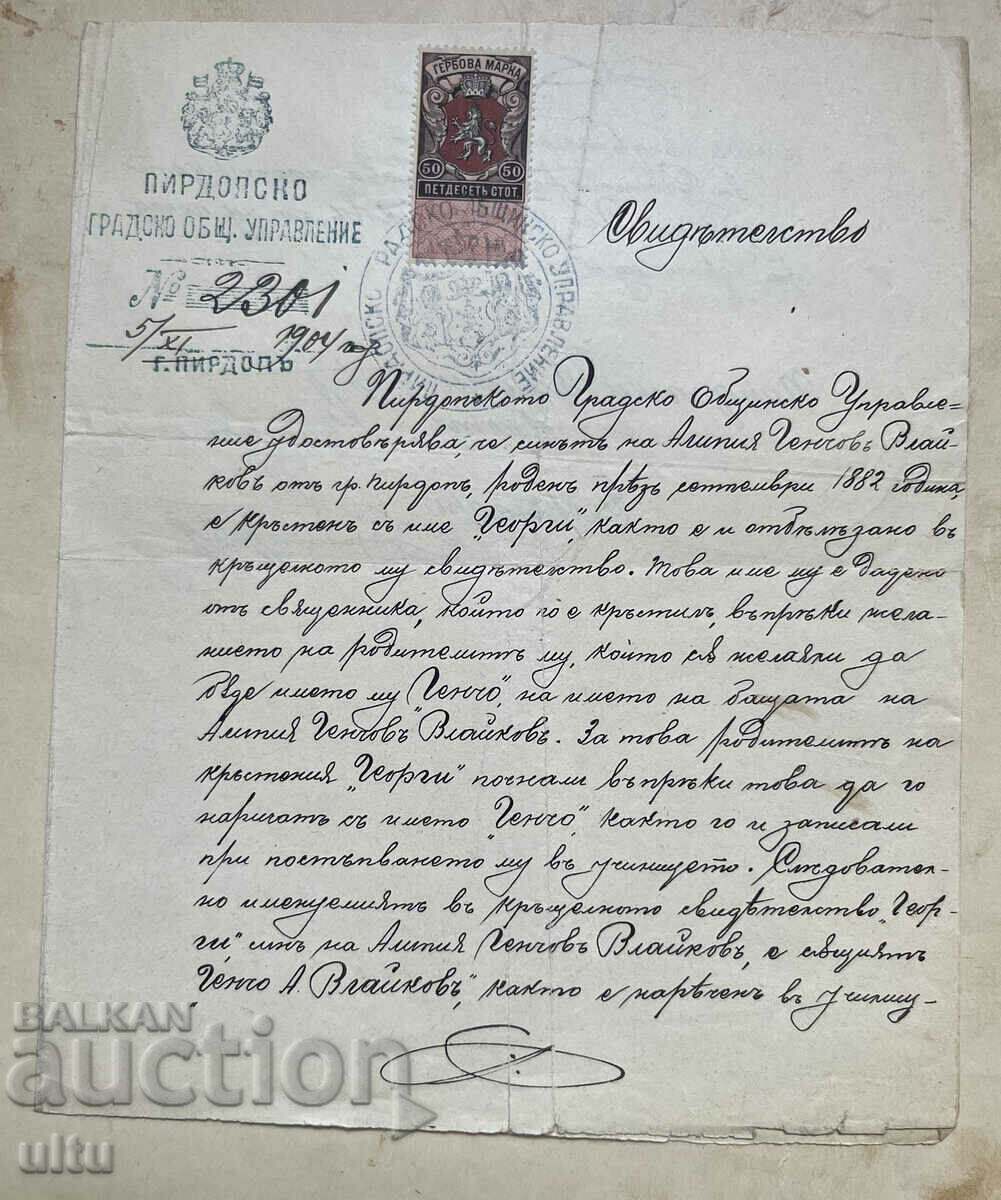 ПИРДОПСКО
ГРАДСКО ОБЩ. УПРАВЛЕНИЕ
№ 2301
5/XI 1904 год
Г. ПИРДОПЪ
ГЕРБОВА МАРКА
50 50
ПЕТДЕСЕТЬ СТОТ.
ПИРДОПСКО ГРАДСКО ОБЩИНСКО УПРАВЛЕНИЕ
Свидѣтелство
Пирдопското Градско Общинско Управле=
ние удостовѣрява, че синътъ на Алипия Генчовъ Влай-
ковъ отъ гр. Пирдопъ, роденъ прѣзъ септемврий 1882 година,
е кръстенъ съ име "Георги", както е и отбѣлѣзано въ
кръщелното му свидѣтелство. Това име му е дадено
отъ священника, който го е кръстилъ, въпрѣки жела-
нието на родителитѣ му, които сѫ желаяли да
бѫде името му "Генчо", на името на бащата на
Алипия Генчовъ Влайковъ. За това родителитѣ на
кръстения "Георги" почнали въпрѣки това да го
наричатъ съ името "Генчо", както го и записали
при постъпването му въ училището. Слѣдовател-
но именуемиятъ въ кръщелното свидѣтелство "Геор-
ги", синъ на Алипия Генчовъ Влайковъ, е сѫщиятъ
"Генчо А. Влайковъ", както е нарѣченъ въ училищ-
BALKAN
auction
ultu